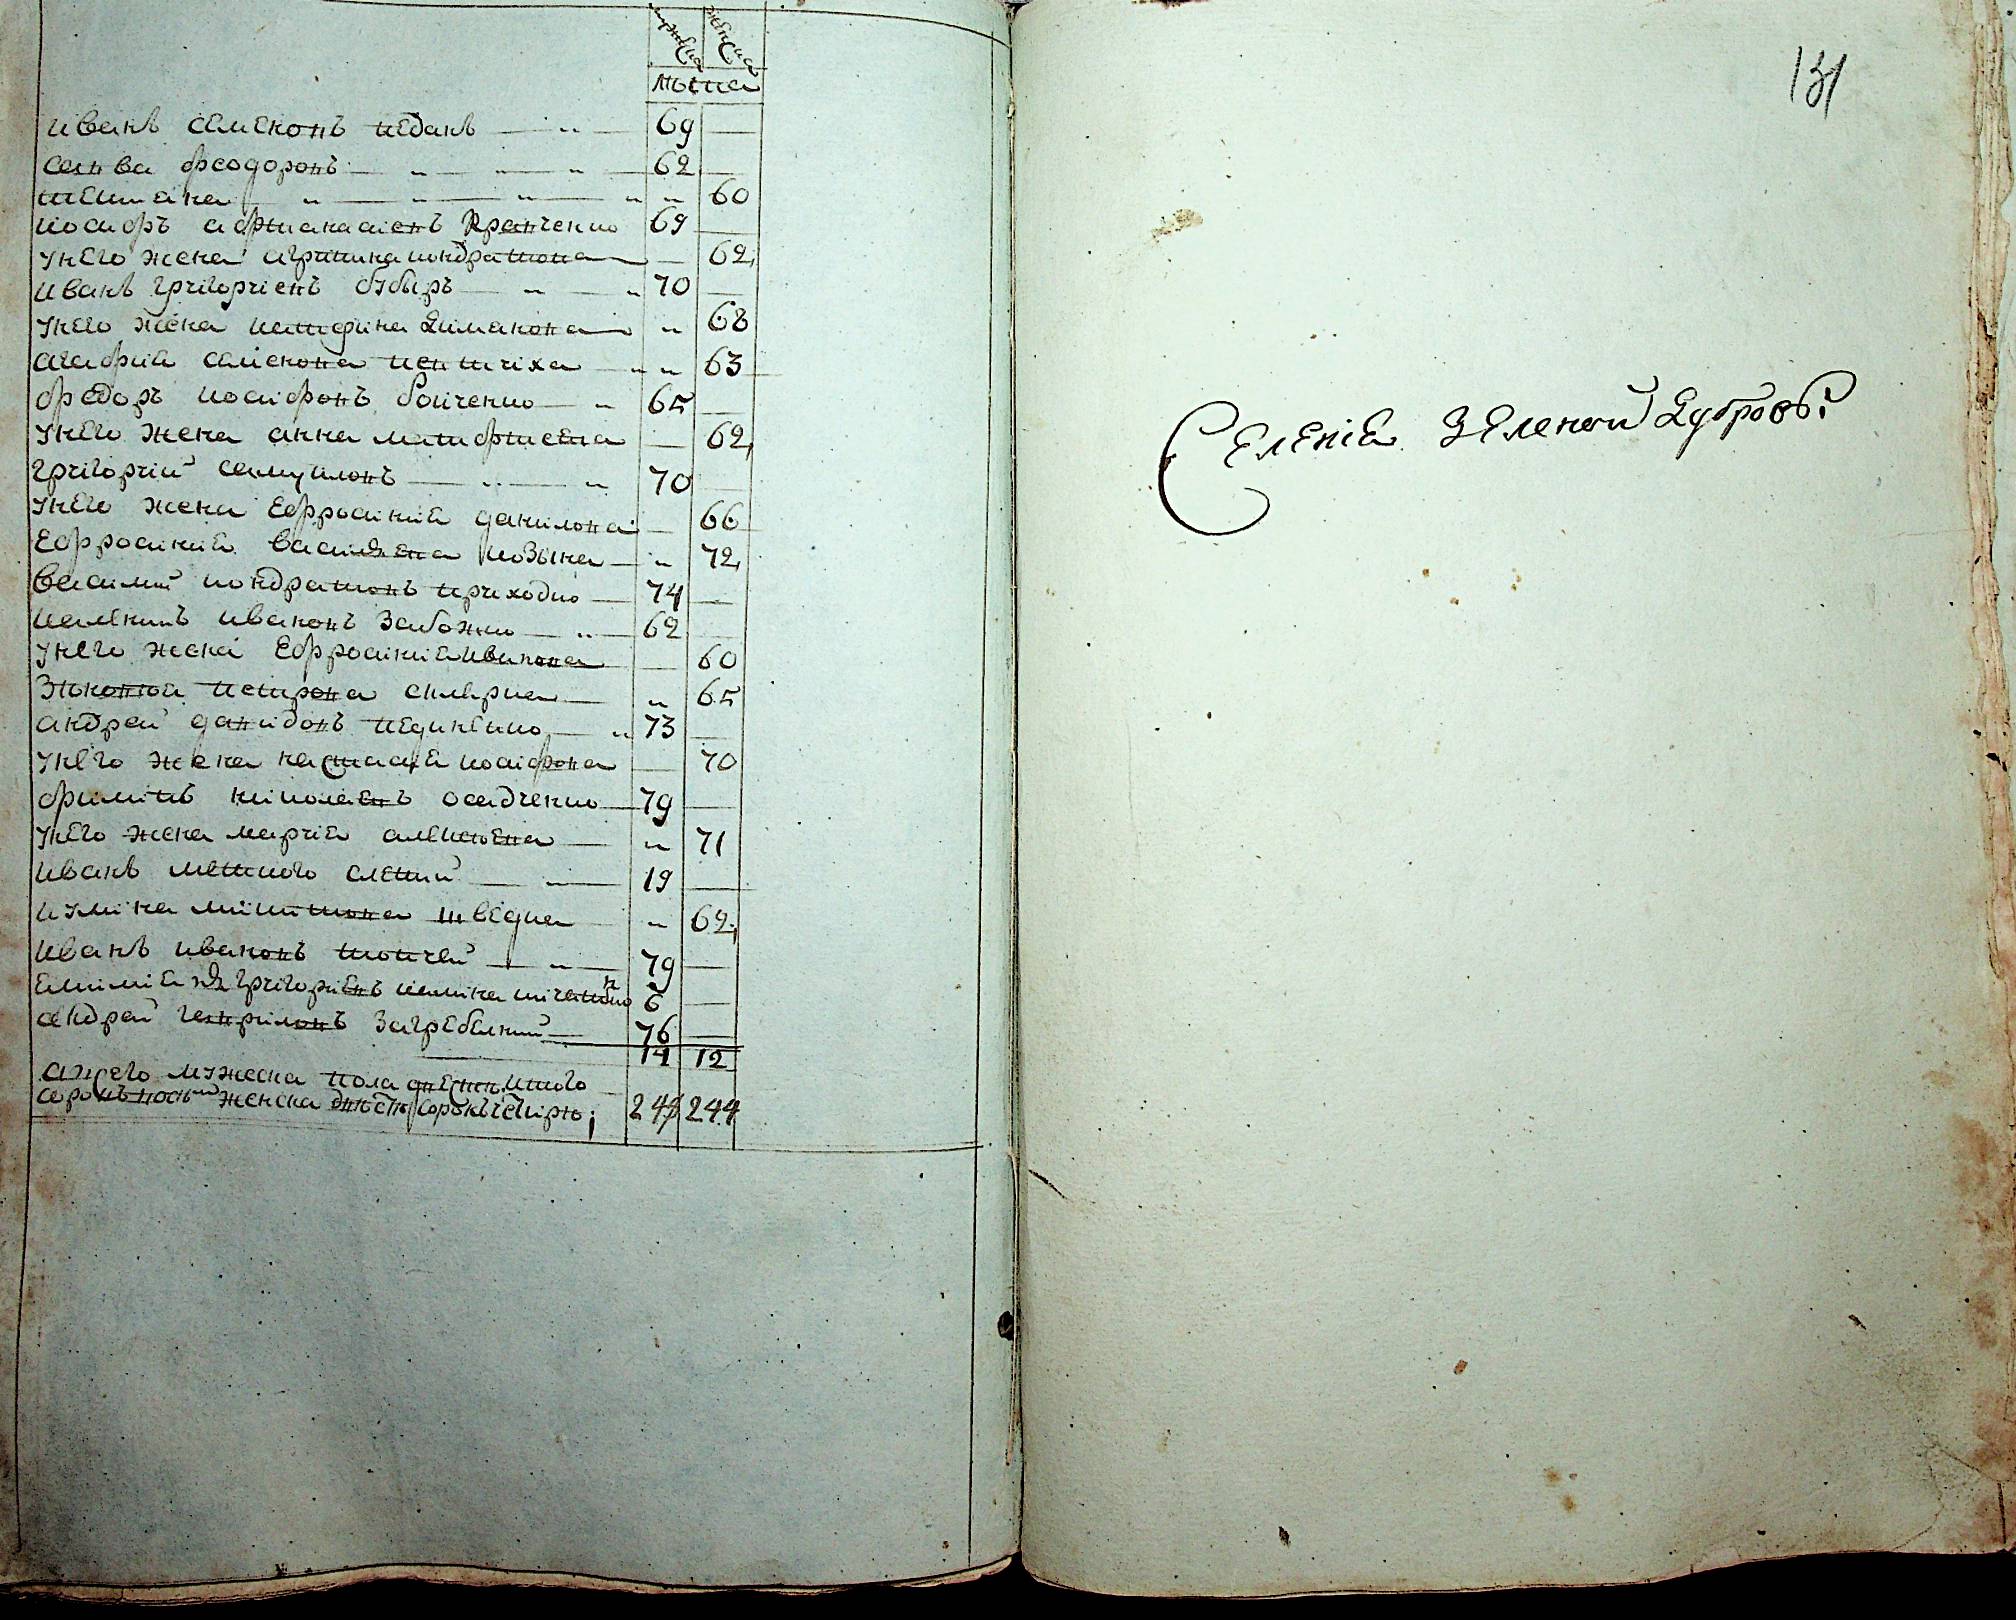 мужеска женска
лѣта
иванъ семеновъ педанъ 69
савва феодоровъ 62
60
иосифъ афтанасиевъ кравченко 69
унего жена агрипина кондратова 62
иванъ григориевъ бубыръ 70
унего жена катерина Якимакова 68
агафия семенова 63
федоръ иосифовъ бойченко 65
унего жена анна матфтиева 62
григорий самуиловъ 70
унего жена Ефросиния данилова 66
Ефросиния василиева козыка 72
василий кондратовъ приходко 74
ивановъ забожко 62
унего жена Ефросиния иванова 60
петрова 65
андрей давидовъ педиченко 73
унего жена настасия иосифова 70
филипъ николаевъ осадченко 79
унего жена мария алексѣева 71
иванъ 19
никитова шведка 62
иванъ ивановъ 79
григориевъ 6
андрей гавриловъ загребелний 76
14 12
авсего мужеска пола двести
сорокъ женска двѣстѣ сорокъ четирѣ 244
131
Селения Зеленой Дубровы